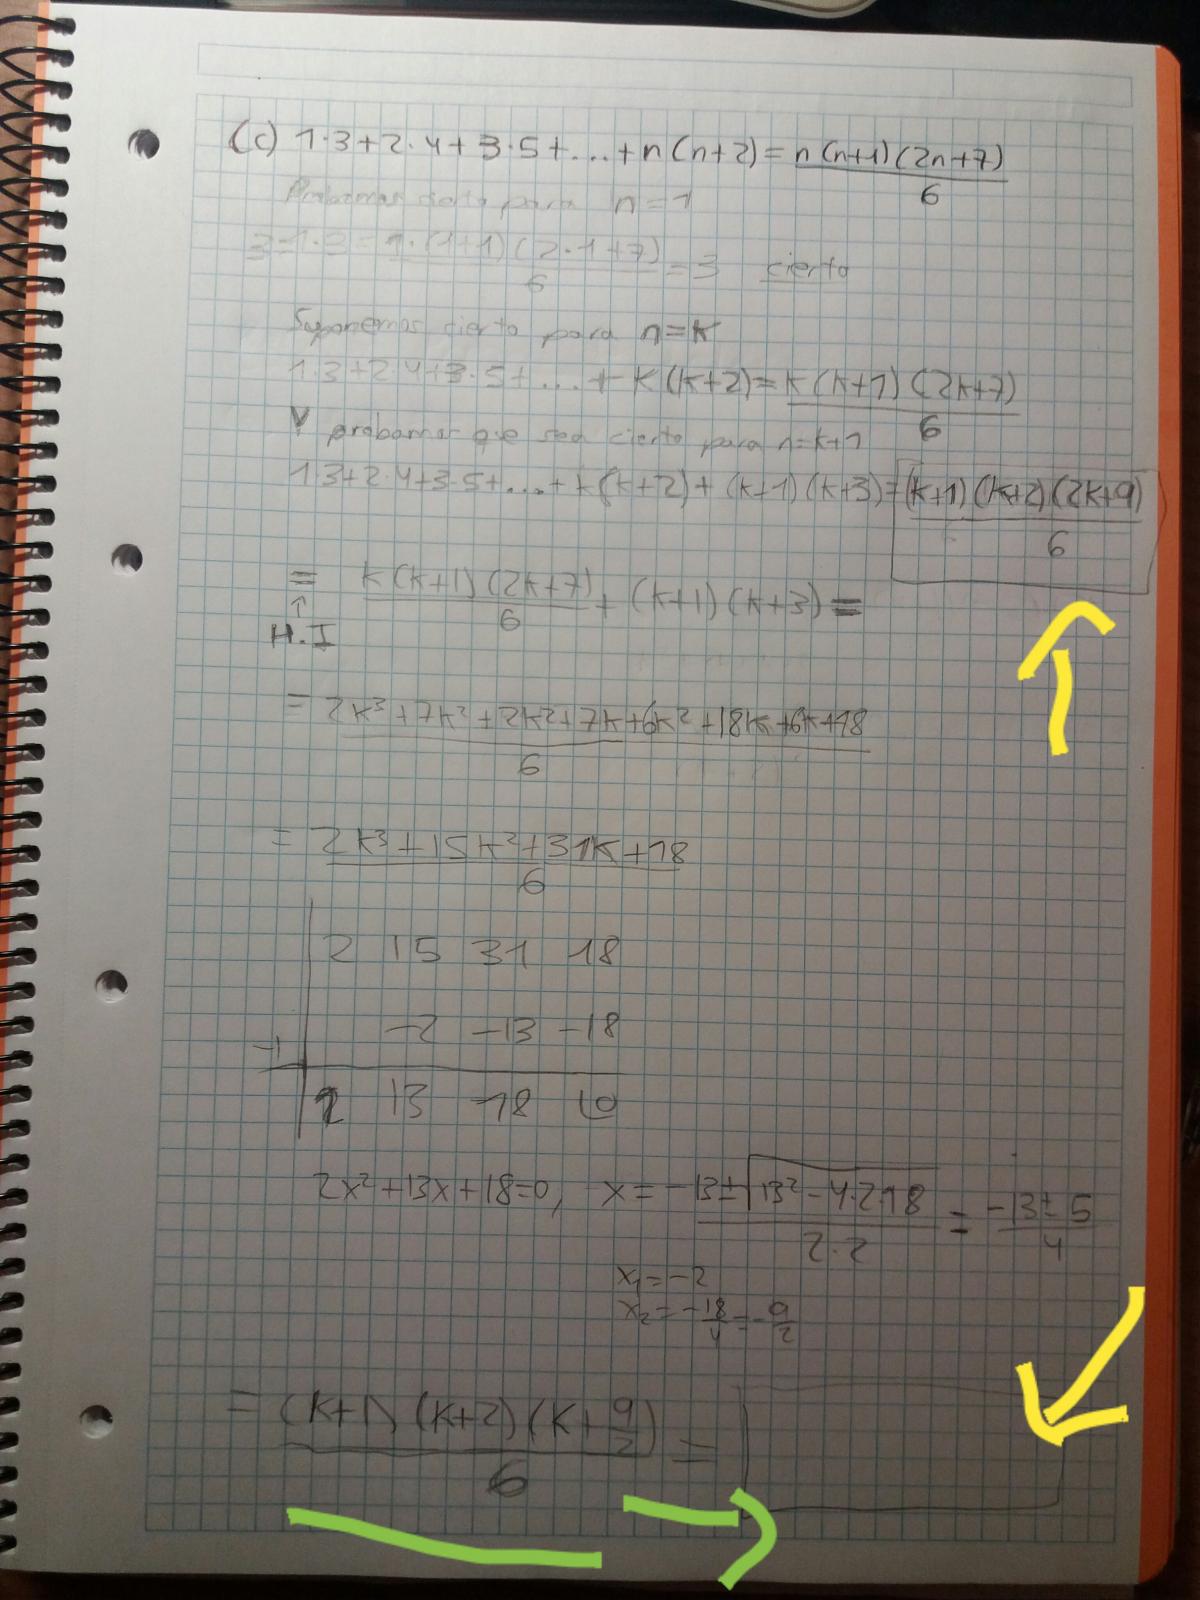 (c) 1·3+2·4+3·5+...+n(n+2)= n(n+1)(2n+7)
6
Probamos cierto para n=1
3=1·3=1·(1+1)(2·1+7)
6
=3 cierto
Suponemos cierto para n=k
1·3+2·4+3·5+...+k(k+2)=k(k+1)(2k+7)
6
Y probamos que sea cierto para n=k+1
1·3+2·4+3·5+...+k(k+2)+(k+1)(k+3)=(k+1)(k+2)(2k+9)
6
= k(k+1)(2k+7)
6
+(k+1)(k+3)=
↑
H.I
= 2k³+7k²+2k²+7k+6k²+18k+6k+18
6
= 2k³+15k²+31k+18
6
2 15 31 18
-1 -2 -13 -18
2 13 18 0
2x²+13x+18=0, x= -13±√13²-4·2·18
2·2
= -13±5
4
x₁=-2
x₂=-18/4=-9/2
= (k+1)(k+2)(k+9/2)
6
=